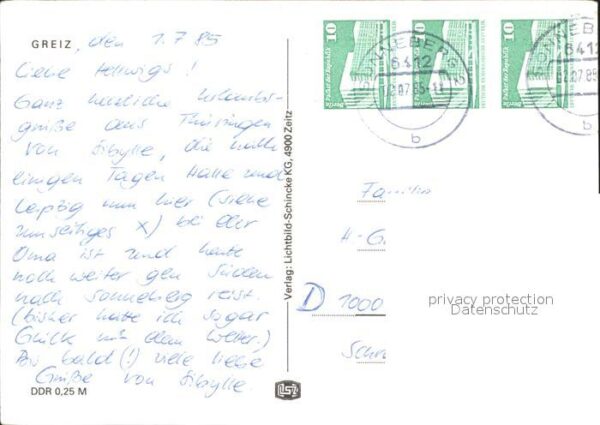 GREIZ, den 1.7.85
Liebe Hellwigs!
Ganz herzliche Urlaubs-
grüße aus Thüringen
von Sibylle, die nach
einigen Tagen Halle und
Leipzig nun hier (siehe
umseitiges X) bei der
Oma ist und heute
noch weiter gen Süden
nach Sonneberg reist.
(Bisher hatte ich sogar
Glück mit dem Wetter.)
Bis bald(!) viele liebe
Grüße von Sibylle.
DDR 0,25 M
Verlag: Lichtbild-Schincke KG, 4900 Zeitz
10
Palast der Republik
Berlin
10
Palast der Republik
Berlin
10
Palast der Republik
Berlin
SONNEBERG
6412
b
SONNEBERG
6412
b
Familie
H-G.
D 1000
privacy protection
Datenschutz